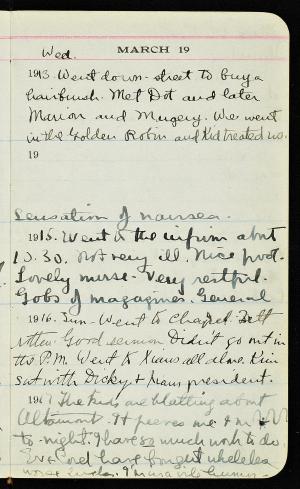 Wed. MARCH 19
1913. Went down-street to buy a
hairbrush. Met Dot and later
Marion and Margery. We went
in the Golden Robin and Kid treated us.
19
Sensation of nausea.
1915. Went to the infirm abut
10.30. Not very ill. Nice
Lovely nurse. Very restful.
Gobs of magazines. General
1916. Sun- Went to Chapel. Felt
rotten. Good sermon. Didn't go out in
the P.M. Went to Xians all alone. Kim
sat with Dicky + Xians president.
191 The kids are blatting about
Altamont. It peeves me
to-night. I have so much work to do.
Ev + Cord have bought ukeleles